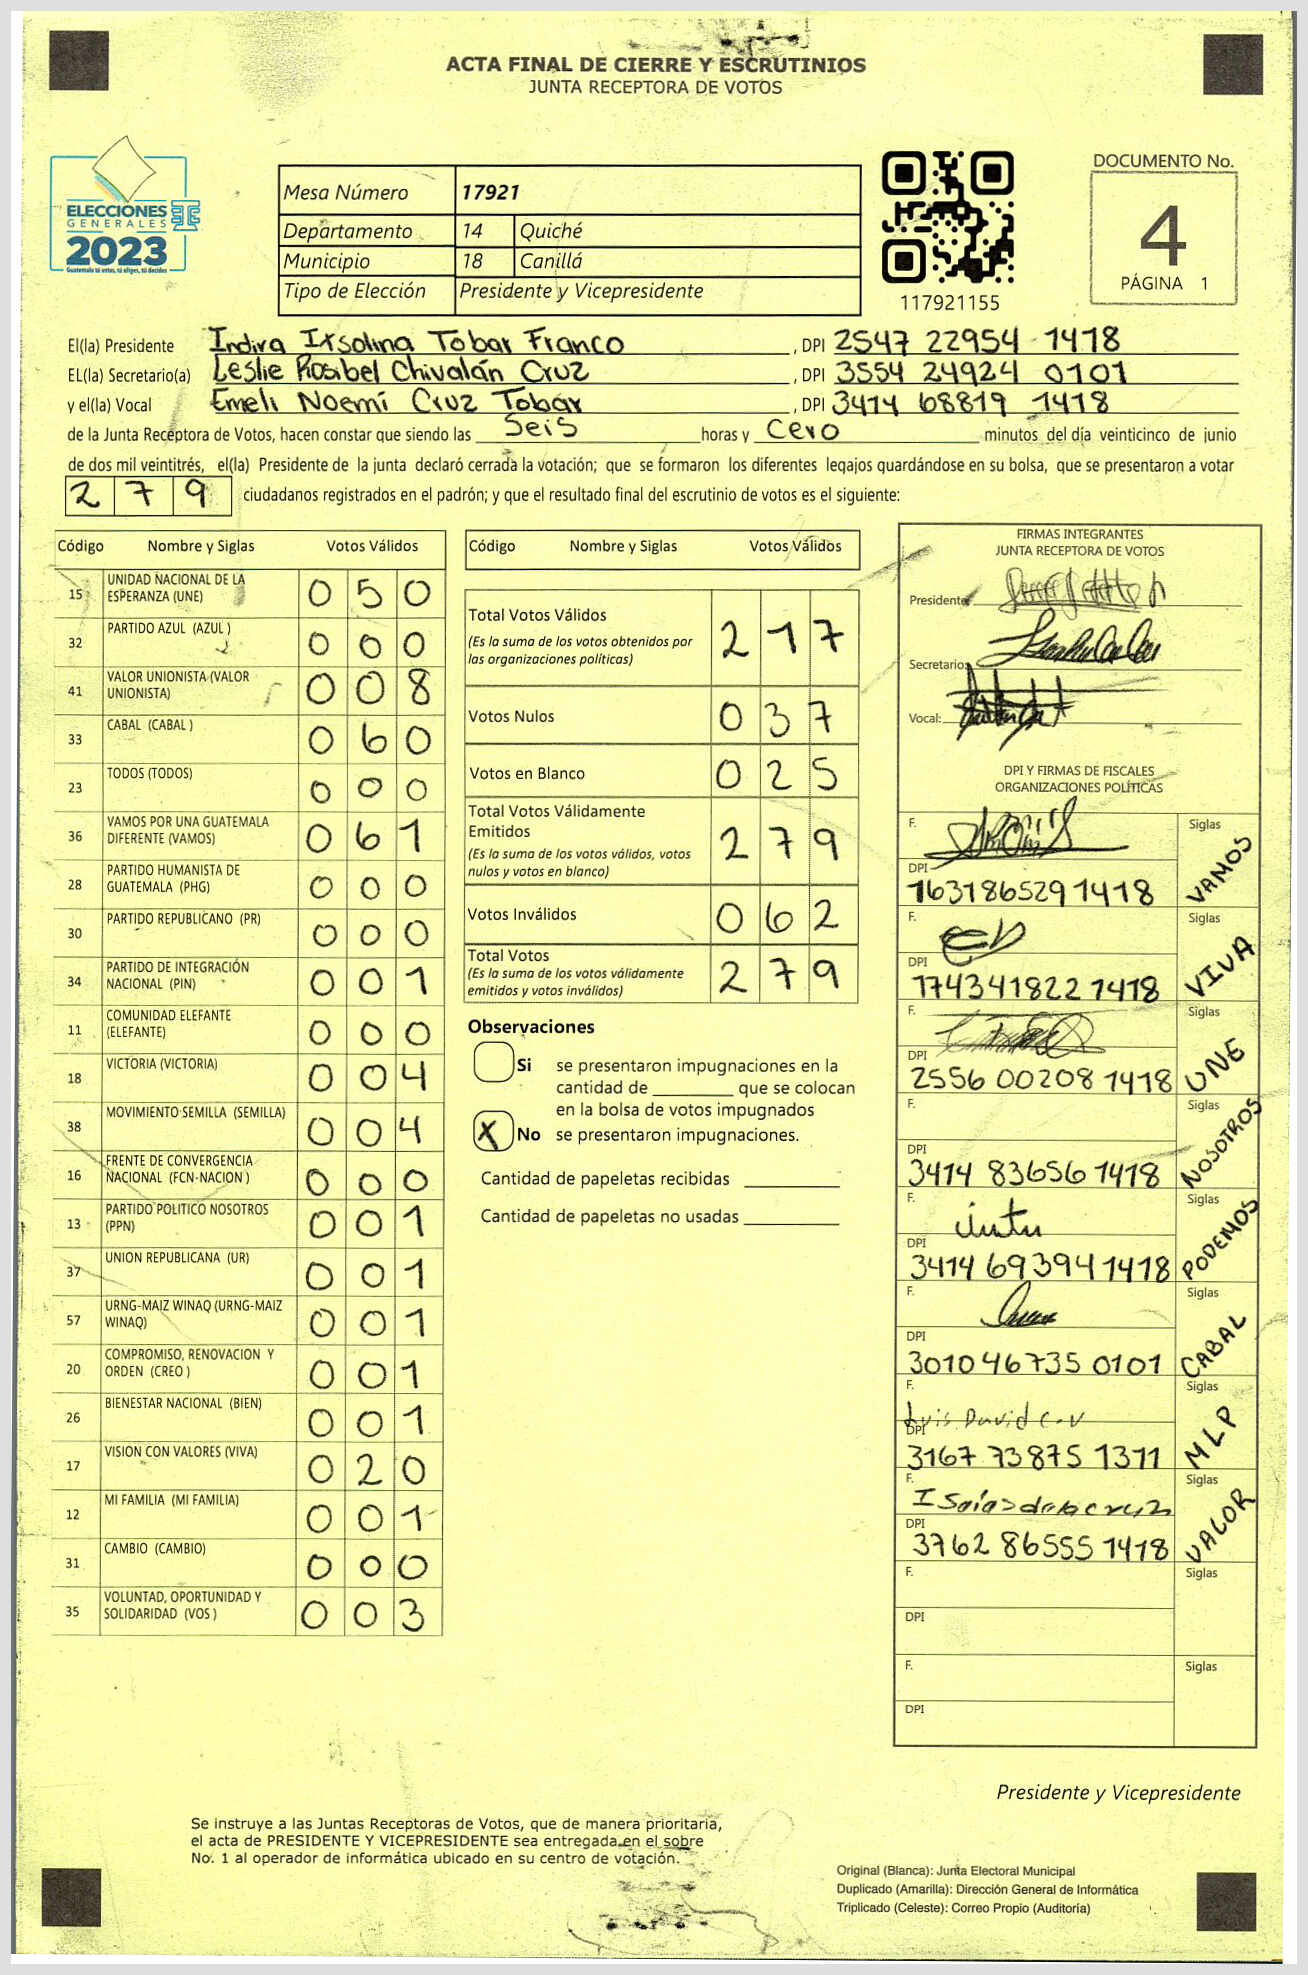 ACTA FINAL DE CIERRE Y ESCRUTINIOS
JUNTA RECEPTORA DE VOTOS
ELECCIONES
GENERALES
2023
Guatemala tú votas, tú eliges, tú decides
Mesa Número 17921
Departamento 14 Quiché
Municipio 18 Canillá
Tipo de Elección Presidente y Vicepresidente
117921155
DOCUMENTO No.
4
PÁGINA 1
El(la) Presidente Indira Irsolina Tobar Franco , DPI 2547 22954 1418
EL(la) Secretario(a) Leslie Rosibel Chivalán Cruz , DPI 3554 24924 0101
y el(la) Vocal Emeli Noemí Cruz Tobar , DPI 3414 68819 1418
de la Junta Receptora de Votos, hacen constar que siendo las Seis horas y Cero minutos del día veinticinco de junio
de dos mil veintitrés, el(la) Presidente de la junta declaró cerrada la votación; que se formaron los diferentes legajos guardándose en su bolsa, que se presentaron a votar
2 7 9 ciudadanos registrados en el padrón; y que el resultado final del escrutinio de votos es el siguiente:
Código Nombre y Siglas Votos Válidos
15 UNIDAD NACIONAL DE LA ESPERANZA (UNE) 0 5 0
32 PARTIDO AZUL (AZUL ) 0 0 0
41 VALOR UNIONISTA (VALOR UNIONISTA) 0 0 8
33 CABAL (CABAL ) 0 6 0
23 TODOS (TODOS) 0 0 0
36 VAMOS POR UNA GUATEMALA DIFERENTE (VAMOS) 0 6 1
28 PARTIDO HUMANISTA DE GUATEMALA (PHG) 0 0 0
30 PARTIDO REPUBLICANO (PR) 0 0 0
34 PARTIDO DE INTEGRACIÓN NACIONAL (PIN) 0 0 1
11 COMUNIDAD ELEFANTE (ELEFANTE) 0 0 0
18 VICTORIA (VICTORIA) 0 0 4
38 MOVIMIENTO SEMILLA (SEMILLA) 0 0 4
16 FRENTE DE CONVERGENCIA NACIONAL (FCN-NACION ) 0 0 0
13 PARTIDO POLITICO NOSOTROS (PPN) 0 0 1
37 UNION REPUBLICANA (UR) 0 0 1
57 URNG-MAIZ WINAQ (URNG-MAIZ WINAQ) 0 0 1
20 COMPROMISO, RENOVACION Y ORDEN (CREO ) 0 0 1
26 BIENESTAR NACIONAL (BIEN) 0 0 1
17 VISION CON VALORES (VIVA) 0 2 0
12 MI FAMILIA (MI FAMILIA) 0 0 1
31 CAMBIO (CAMBIO) 0 0 0
35 VOLUNTAD, OPORTUNIDAD Y SOLIDARIDAD (VOS ) 0 0 3
Código Nombre y Siglas Votos Válidos
Total Votos Válidos 2 1 7
(Es la suma de los votos obtenidos por
las organizaciones políticas)
Votos Nulos 0 3 7
Votos en Blanco 0 2 5
Total Votos Válidamente
Emitidos 2 7 9
(Es la suma de los votos válidos, votos
nulos y votos en blanco)
Votos Inválidos 0 6 2
Total Votos 2 7 9
(Es la suma de los votos válidamente
emitidos y votos inválidos)
Observaciones
Si se presentaron impugnaciones en la
cantidad de ________ que se colocan
en la bolsa de votos impugnados
X No se presentaron impugnaciones.
Cantidad de papeletas recibidas
Cantidad de papeletas no usadas
FIRMAS INTEGRANTES
JUNTA RECEPTORA DE VOTOS
Presidente:
Secretario:
Vocal:
DPI Y FIRMAS DE FISCALES
ORGANIZACIONES POLÍTICAS
F. Siglas
DPI 163186529 1418 VAMOS
F. Siglas
DPI 174341822 1418 VIVA
F. Siglas
DPI 2556 00208 1418 UNE
F. Siglas
DPI 3414 83656 1418 NOSOTROS
F. Siglas
DPI 3414 69394 1418 PODEMOS
F. Siglas
DPI 301046735 0101 CABAL
F. Luis David C.V Siglas
DPI 3167 73875 1311 MLP
F. Isaias de la cruz Siglas
DPI 3762 86555 1418 VALOR
F. Siglas
DPI
F. Siglas
DPI
Presidente y Vicepresidente
Se instruye a las Juntas Receptoras de Votos, que de manera prioritaria,
el acta de PRESIDENTE Y VICEPRESIDENTE sea entregada en el sobre
No. 1 al operador de informática ubicado en su centro de votación.
Original (Blanca): Junta Electoral Municipal
Duplicado (Amarilla): Dirección General de Informática
Triplicado (Celeste): Correo Propio (Auditoría)